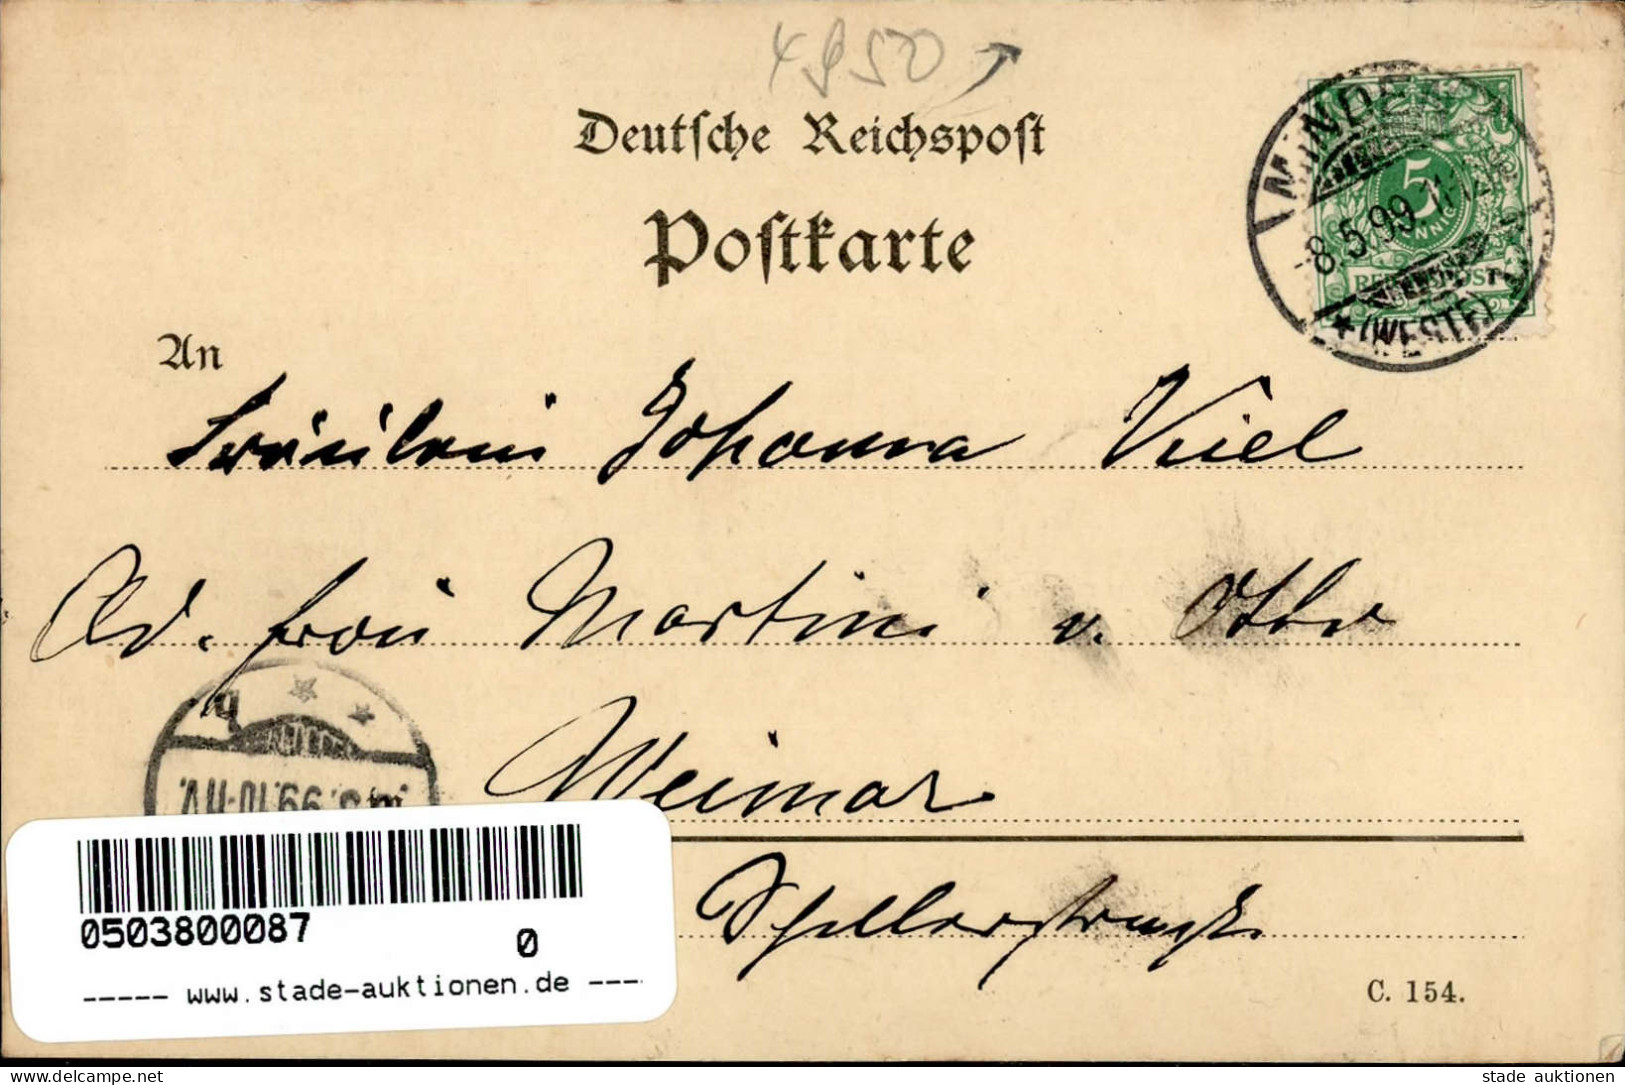 4950
Deutsche Reichspost
Postkarte
MINDEN
8.5.99 11-12
5
(WESTF)
An
Fräulein Johanna Kiel
Ad. Frau Martini v.
Weimar
Schillerstraße
0503800087
0
----- www.stade-auktionen.de ----
C. 154.
www.delcampe.net
stade auktionen